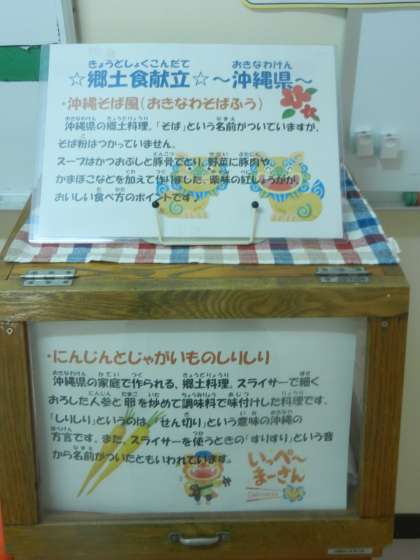 ☆郷土食献立☆～沖縄県～
・沖縄そば風(おきなわそばふう)
沖縄県の郷土料理。「そば」という名前がついていますが、
そば粉はつかっていません。
スープはかつおぶしと豚骨でとり、野菜に豚肉や
かまぼこなどを加えて作りました。薬味の紅しょうがが、
おいしい食べ方のポイントです。
・にんじんとじゃがいものしりしり
沖縄県の家庭で作られる、郷土料理。スライサーで細く
おろした人参と卵を炒めて調味料で味付けした料理です。
「しりしり」というのは「せん切り」という意味の沖縄の
方言です。また、スライサーを使うときの「すりすり」という音
から名前がついたともいわれています。
いっぺ～
まーさん